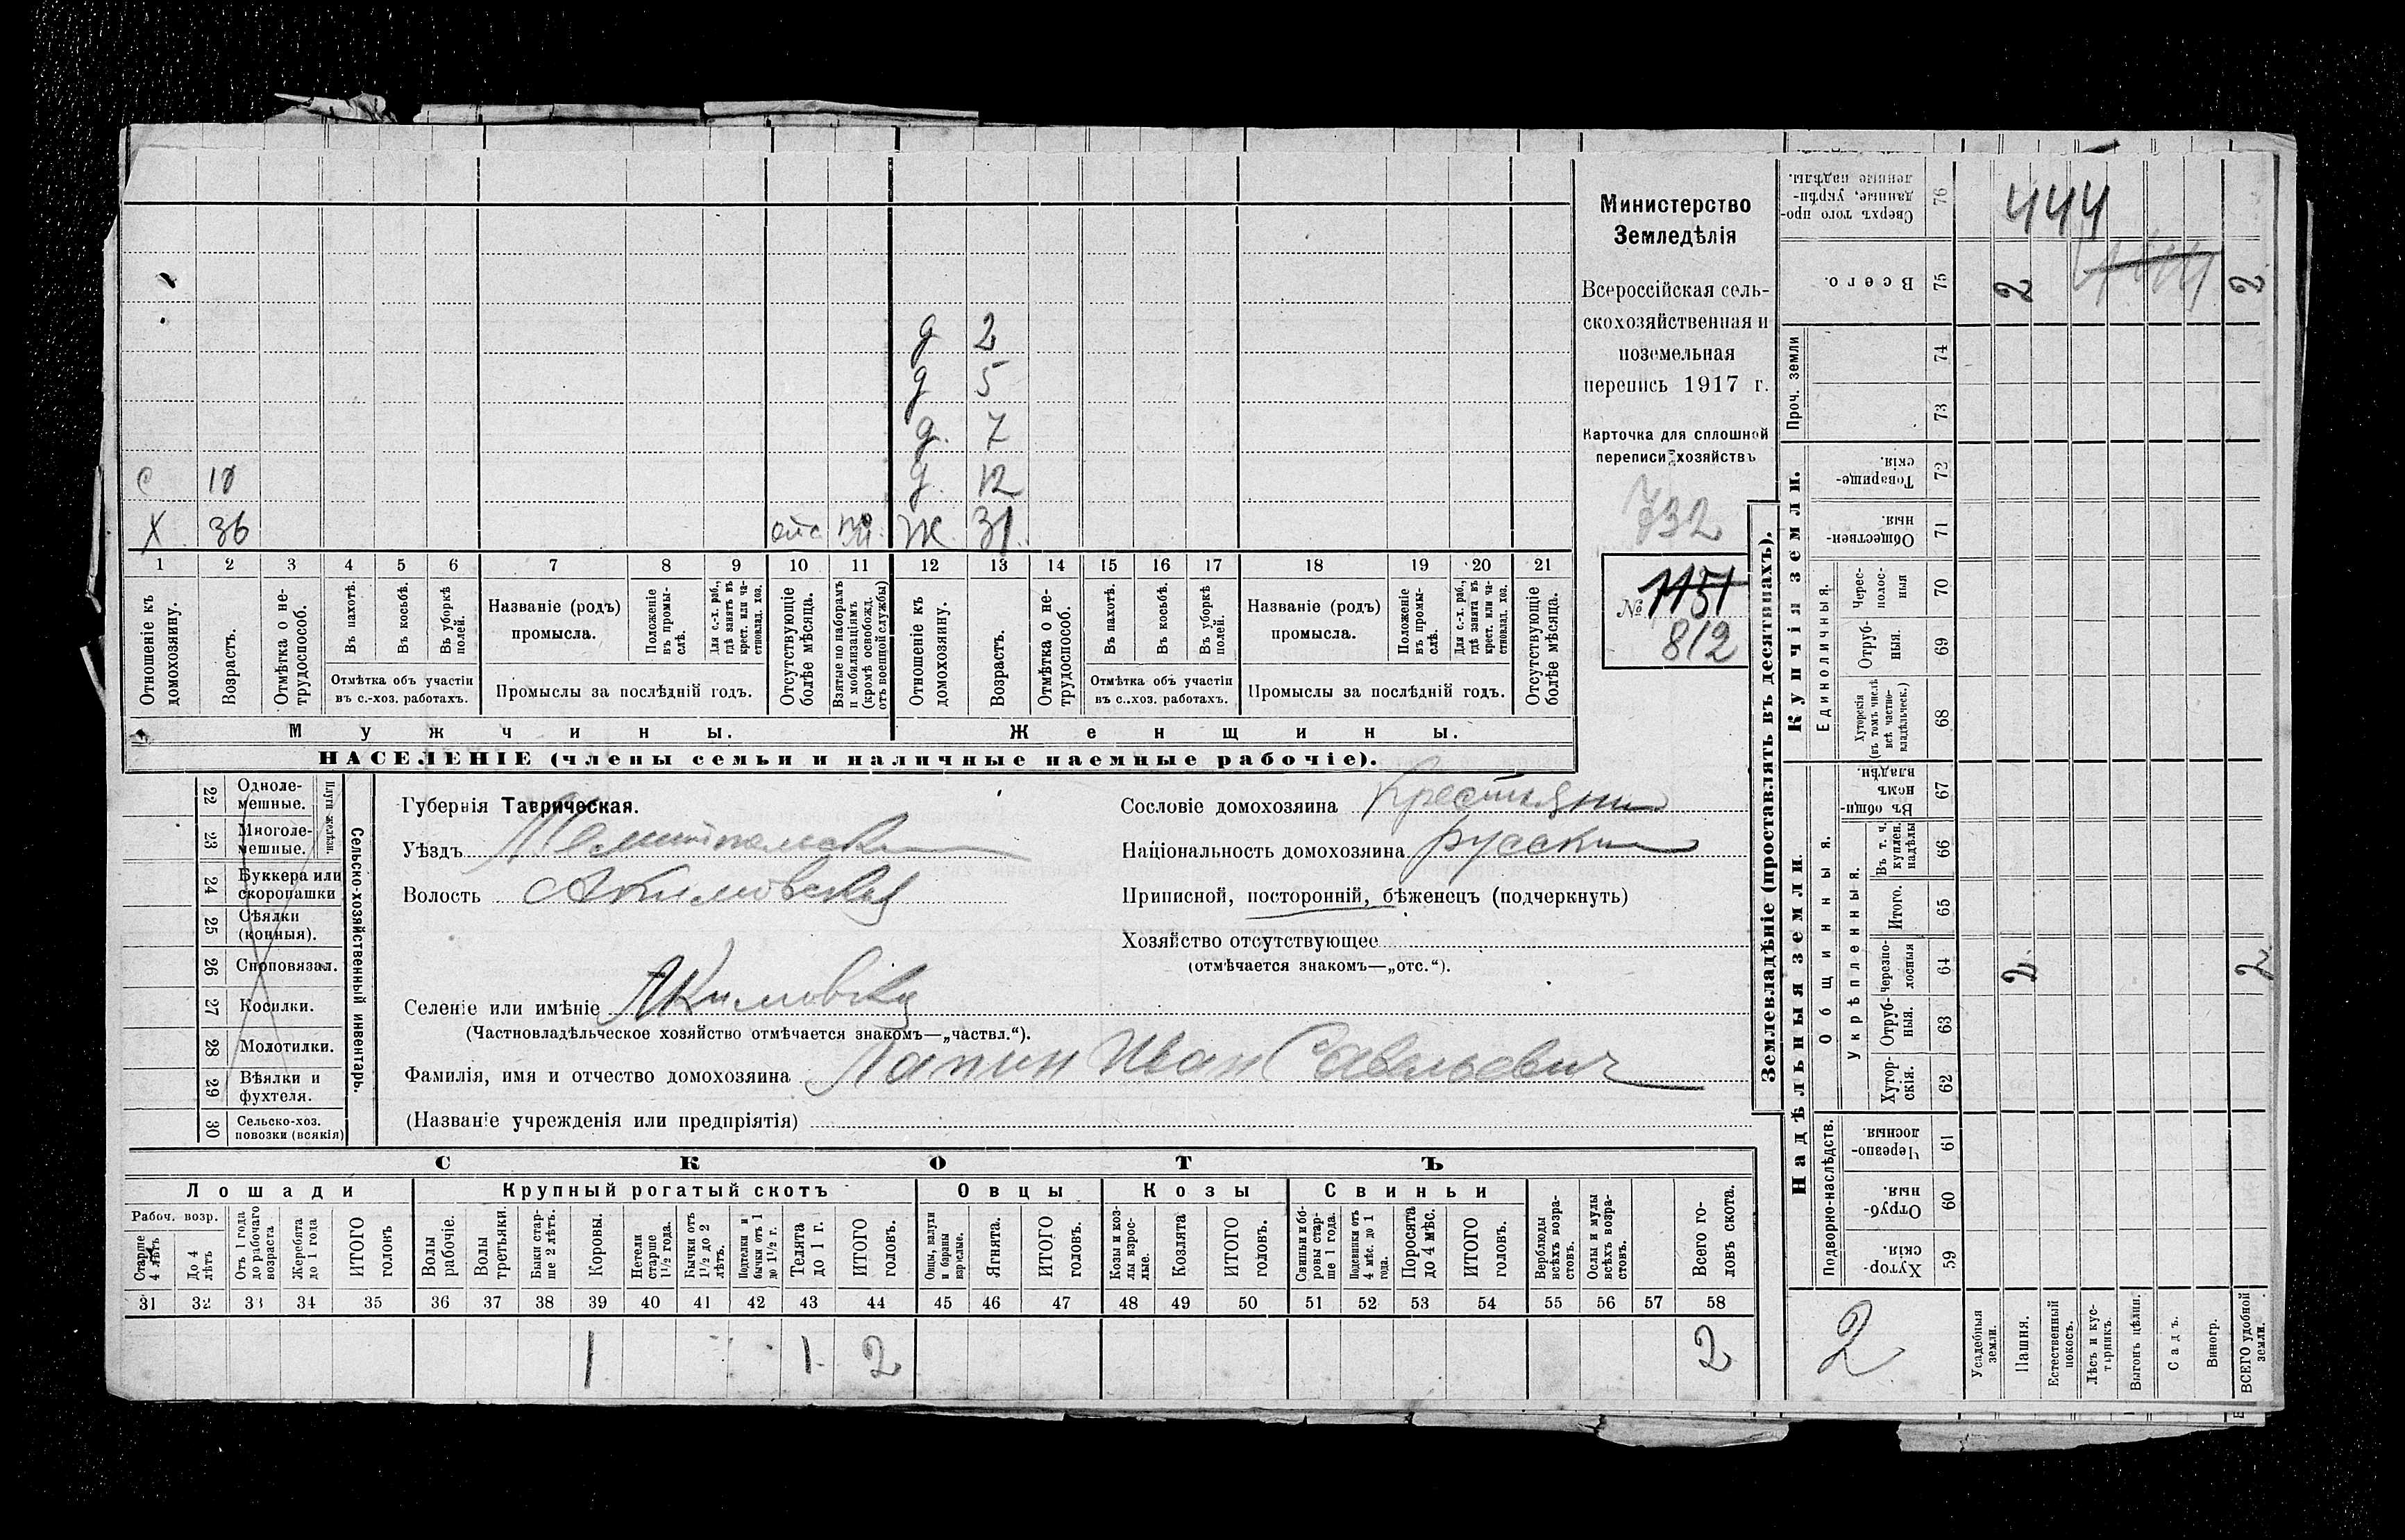 Министерство
Земледѣлія
Всероссійская сель-
скохозяйственная и
поземельная
перепись 1917 г.
Карточка для сплошной
переписи хозяйствъ
732
№ 1151
812
д 2
д 5
д. 7
с 10 д. 12
Х 36 отс Ж. 31
1 2 3 4 5 6 7 8 9 10 11 12 13 14 15 16 17 18 19 20 21
Отношеніе къ домохозяину.
Возрастъ.
Отмѣтка о не-трудоспособ.
Въ пахотѣ.
Въ косьбѣ.
Въ уборкѣ полей.
Отмѣтка объ участіи въ с.-хоз. работахъ.
Названіе (родъ) промысла.
Положеніе въ промы-слѣ.
Для с.-х. раб., гдѣ занятъ въ крест. или ча-стновлад. хоз.
Промыслы за послѣдній годъ.
Отсутствующіе болѣе мѣсяца.
Взятые по наборамъ и мобилизаціямъ (кромѣ освобожд. отъ военной службы)
Отношеніе къ домохозяину.
Возрастъ.
Отмѣтка о не-трудоспособ.
Въ пахотѣ.
Въ косьбѣ.
Въ уборкѣ полей.
Отмѣтка объ участіи въ с..хоз. работахъ.
Названіе (родъ) промысла.
Положеніе въ промы-слѣ.
Для с.-х. раб., гдѣ занята въ крест. или ча-стновлад. хоз.
Промыслы за послѣдній годъ.
Отсутствующіе болѣе мѣсяца.
Мужчины. Женщины.
НАСЕЛЕНІЕ (члены семьи и наличные наемные рабочіе).
Сельско-хозяйственный инвентарь.
Плуги желѣзн.
22 Одноле-мешные.
23 Многоле-мешные.
24 Буккера или скоропашки
25 Сѣялки (конныя).
26 Сноповязал.
27 Косилки.
28 Молотилки.
29 Вѣялки и фухтеля.
30 Сельско-хоз. повозки (всякія)
Губернія Таврическая.
Уѣздъ Мелитопольск
Волость Акимовская
Селеніе или имѣніе Акимовка
(Частновладѣльческое хозяйство отмѣчается знакомъ—„частвл.“).
Фамилія, имя и отчество домохозяина Лапин Иван Савельевич
(Названіе учрежденія или предпріятія)
Сословіе домохозяина Крестьянин
Національность домохозяина русский
Приписной, посторонній, бѣженецъ (подчеркнуть)
Хозяйство отсутствующее
(отмѣчается знакомъ—„отс.“).
СКОТЪ
Лошади Крупный рогатый скотъ Овцы Козы Свиньи
Рабоч. возр.
Старше 4 лѣтъ
До 4 лѣтъ
Отъ 1 года до рабочаго возраста
Жеребята до 1 года
ИТОГО головъ
Волы рабочіе.
Волы третьяки.
Быки стар-ше 2 лѣтъ.
Коровы.
Нетели старше 1½ года.
Бычки отъ 1½ до 2 лѣтъ.
Подтелки и бычки отъ 1 до 1½ г.
Телята до 1 г.
ИТОГО головъ.
Овцы, валухи и бараны взрослые.
Ягнята.
ИТОГО головъ.
Козы и коз-лы взрос-лые.
Козлята
ИТОГО головъ.
Свиньи и бо-ровы стар-ше 1 года.
Подсвинки отъ 4 мѣс. до 1 года.
Поросята до 4 мѣс.
ИТОГО головъ.
Верблюды всѣхъ возра-стовъ.
Ослы и мулы всѣхъ возра-стовъ.
Всего го-ловъ скота.
31 32 33 34 35 36 37 38 39 40 41 42 43 44 45 46 47 48 49 50 51 52 53 54 55 56 57 58
1 1 2 2
Землевладѣніе (проставлять въ десятинахъ).
Купчія земли.
Надѣльныя земли.
Проч. земли
Единоличныя.
Общинныя.
Укрѣпленныя.
Подворно-наслѣдств.
76 Сверхъ того про-данные, укрѣп-ленные надѣлы. 444
75 Всего. 2 2
74
73
72 Товарище-скія.
71 Обществен-ныя.
70 Черес-полос-ныя
69 Отруб-ныя.
68 Хуторскія (въ томъ числѣ всѣ частно-владѣльческ.)
67 Въ общин-номъ владѣн.
66 Въ т. ч. куплен. надѣлы
65 Итого.
64 черезпо-лосныя 2 2
63 Отруб-ныя.
62 Хутор-скія.
61 Черезпо-лосныя.
60 Отруб-ныя.
59 Хутор-скія.
2
Усадебныя земли.
Пашня.
Естественный покосъ.
Лѣсъ и кус-тарникъ.
Выгонъ цѣлин.
Садъ.
Виногр.
ВСЕГО удобной земли.